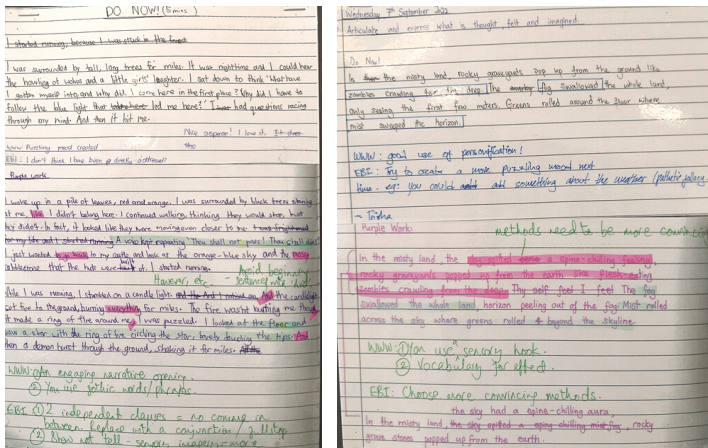 DO NOW! (5 mins)
I started running, because I was stuck in the forest
I was surrounded by tall, long trees for miles. It was nighttime and I could hear
the howling of wolves and a little girls' laughter. I sat down to think 'What have
I gotten myself into, and why did I come here in the first place? Why did I have to
follow the blue light that led me here?' I had questions racing
through my mind. And then it hit me.
Nice Sejanae! I love it.
WWW: Puzzling mood created
EBI: I don't think I have been directly
Purple work
I woke up in a pile of leaves, red and orange. I was surrounded by black trees staring
at me, I didn't belong here. I continued walking, thinking they would stop, but
they didn't. In fact, it looked like they were moving even closer to me
for my life and I started running A voice kept repeating 'Thou shall not pass! Thou shall
I just wanted to go back to my and look at the orange-blue sky and the
that the hut were I started running.
Avoid beginning
However, etc - sentence with And
While I was running, I stumbled on a candle light And the candle light
set fire to the ground, burning everything for miles. The fire wasn't hurting me though
it made a ring of fire around me, I was puzzled. I looked at the floor and
saw a star with the ring of fire circling the star, barely touching the tips. And
then a demon burst through the ground, shaking it for miles.
WWW: ① An engaging narrative opening.
② You use gothic words/phrases.
EBI: ① 2 independent clauses = no comma in
between. Replace with a conjunction / ; / full stop
② Show not tell - sensory imagery more
Wednesday 7th September 2022
Articulate and express what is thought, felt and imagined.
Do Now!
In the misty land, rocky graveyards pop up from the ground like
zombies crawling for the deep. The fog swallowed the whole land,
only seeing the first few meters. Greens rolled around the where
mist swapped the horizon.
WWW: good use of personification!
EBI: Try to create a more puzzling mood next
time. eg: you could add something about the weather (pathetic fallacy
- Trisha
Purple Work:
methods need to be more convincing
In the misty land the sky spilled a spine-chilling feeling,
rocky graveyards popped up from the earth like flesh-eating
zombies crawling from the deep Thy self feel I feel The fog
swallowed the whole land, horizon peeling out of the fog. Mist rolled
across the sky where greens rolled beyond the skyline
WWW: ① You use a sensory hook.
② Vocabulary for effect.
EBI: Choose more convincing methods.
the sky had a spine-chilling aura,
In the misty land, the sky spilled a spine-chilling mist fog, rocky
grave stones popped up from the earth.